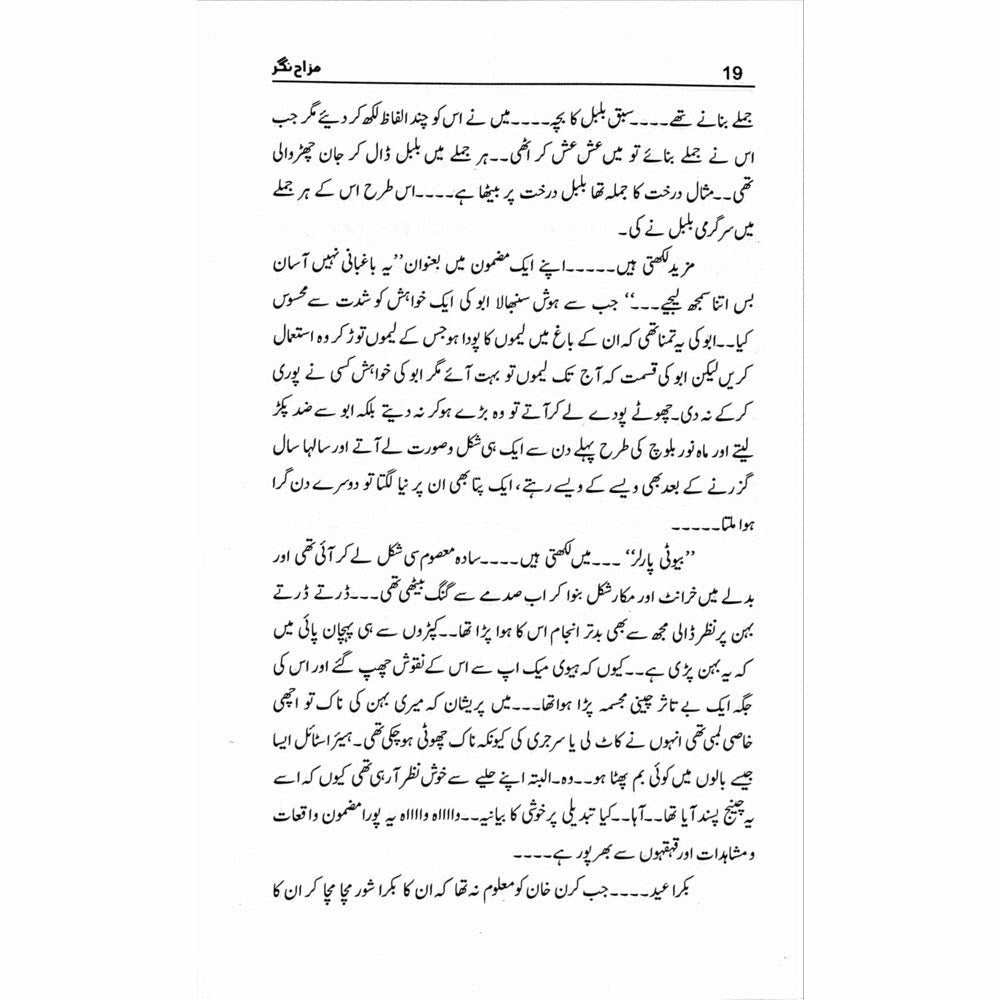 19
مزاح نگر
جملے بنانے تھے۔۔۔۔سبق بلبل کا بچہ۔۔۔۔میں نے اس کو چند الفاظ لکھ کر دیئے مگر جب
اس نے جملے بنائے تو میں عش عش کر اٹھی۔۔ہر جملے میں بلبل ڈال کر جان چھڑوالی
تھی۔۔مثال درخت کا جملہ تھا بلبل درخت پر بیٹھا ہے۔۔۔۔اس طرح اس کے ہر جملے
میں سرگرمی بلبل نے کی۔
مزید لکھتی ہیں۔۔۔۔۔اپنے ایک مضمون میں بعنوان ’’یہ باغبانی نہیں آسان
بس اتنا سمجھ لیجیے۔۔۔‘‘ جب سے ہوش سنبھالا ابو کی ایک خواہش کو شدت سے محسوس
کیا۔۔ابو کی یہ تمنا تھی کہ ان کے باغ میں لیموں کا پودا ہو جس کے لیموں توڑ کر وہ استعمال
کریں لیکن ابو کی قسمت کہ آج تک لیموں تو بہت آئے مگر ابو کی خواہش کسی نے پوری
کر کے نہ دی۔چھوٹے پودے لے کر آتے تو وہ بڑے ہو کر نہ دیتے بلکہ ابو سے ضد پکڑ
لیتے اور ماہ نور بلوچ کی طرح پہلے دن سے ایک ہی شکل و صورت لے آتے اور سالہا سال
گزرنے کے بعد بھی ویسے کے ویسے رہتے، ایک پتا بھی ان پر نیا لگتا تو دوسرے دن گرا
ہوا ملتا۔۔۔۔۔
’’بیوٹی پارلر‘‘ ۔۔۔میں لکھتی ہیں۔۔۔۔سادہ معصوم سی شکل لے کر آئی تھی اور
بدلے میں خرانٹ اور مکار شکل بنوا کر اب صدمے سے گنگ بیٹھی تھی۔۔۔ڈرتے ڈرتے
بہن پر نظر ڈالی مجھ سے بھی بدتر انجام اس کا ہوا پڑا تھا۔۔کپڑوں سے ہی پہچان پائی میں
کہ یہ بہن پڑی ہے۔۔کیوں کہ ہیوی میک اپ سے اس کے نقوش چھپ گئے اور اس کی
جگہ ایک بے تاثر چینی مجسمہ پڑا ہوا تھا۔۔۔میں پریشان کہ میری بہن کی ناک تو اچھی
خاصی لمبی تھی انہوں نے کاٹ لی یا سرجری کی کیونکہ ناک چھوٹی ہو چکی تھی۔ہیئر اسٹائل ایسا
جیسے بالوں میں کوئی بم پھٹا ہو۔۔وہ۔البتہ اپنے حلیے سے خوش نظر آرہی تھی کیوں کہ اسے
یہ چینج پسند آیا تھا۔۔آہا۔۔کیا تبدیلی پر خوشی کا بیانیہ۔۔واااااہ واااااہ یہ پورا مضمون واقعات
و مشاہدات اور قہقہوں سے بھرپور ہے۔۔۔۔
بکرا عید۔۔۔۔جب کرن خان کو معلوم نہ تھا کہ ان کا بکرا شور مچا مچا کر ان کا